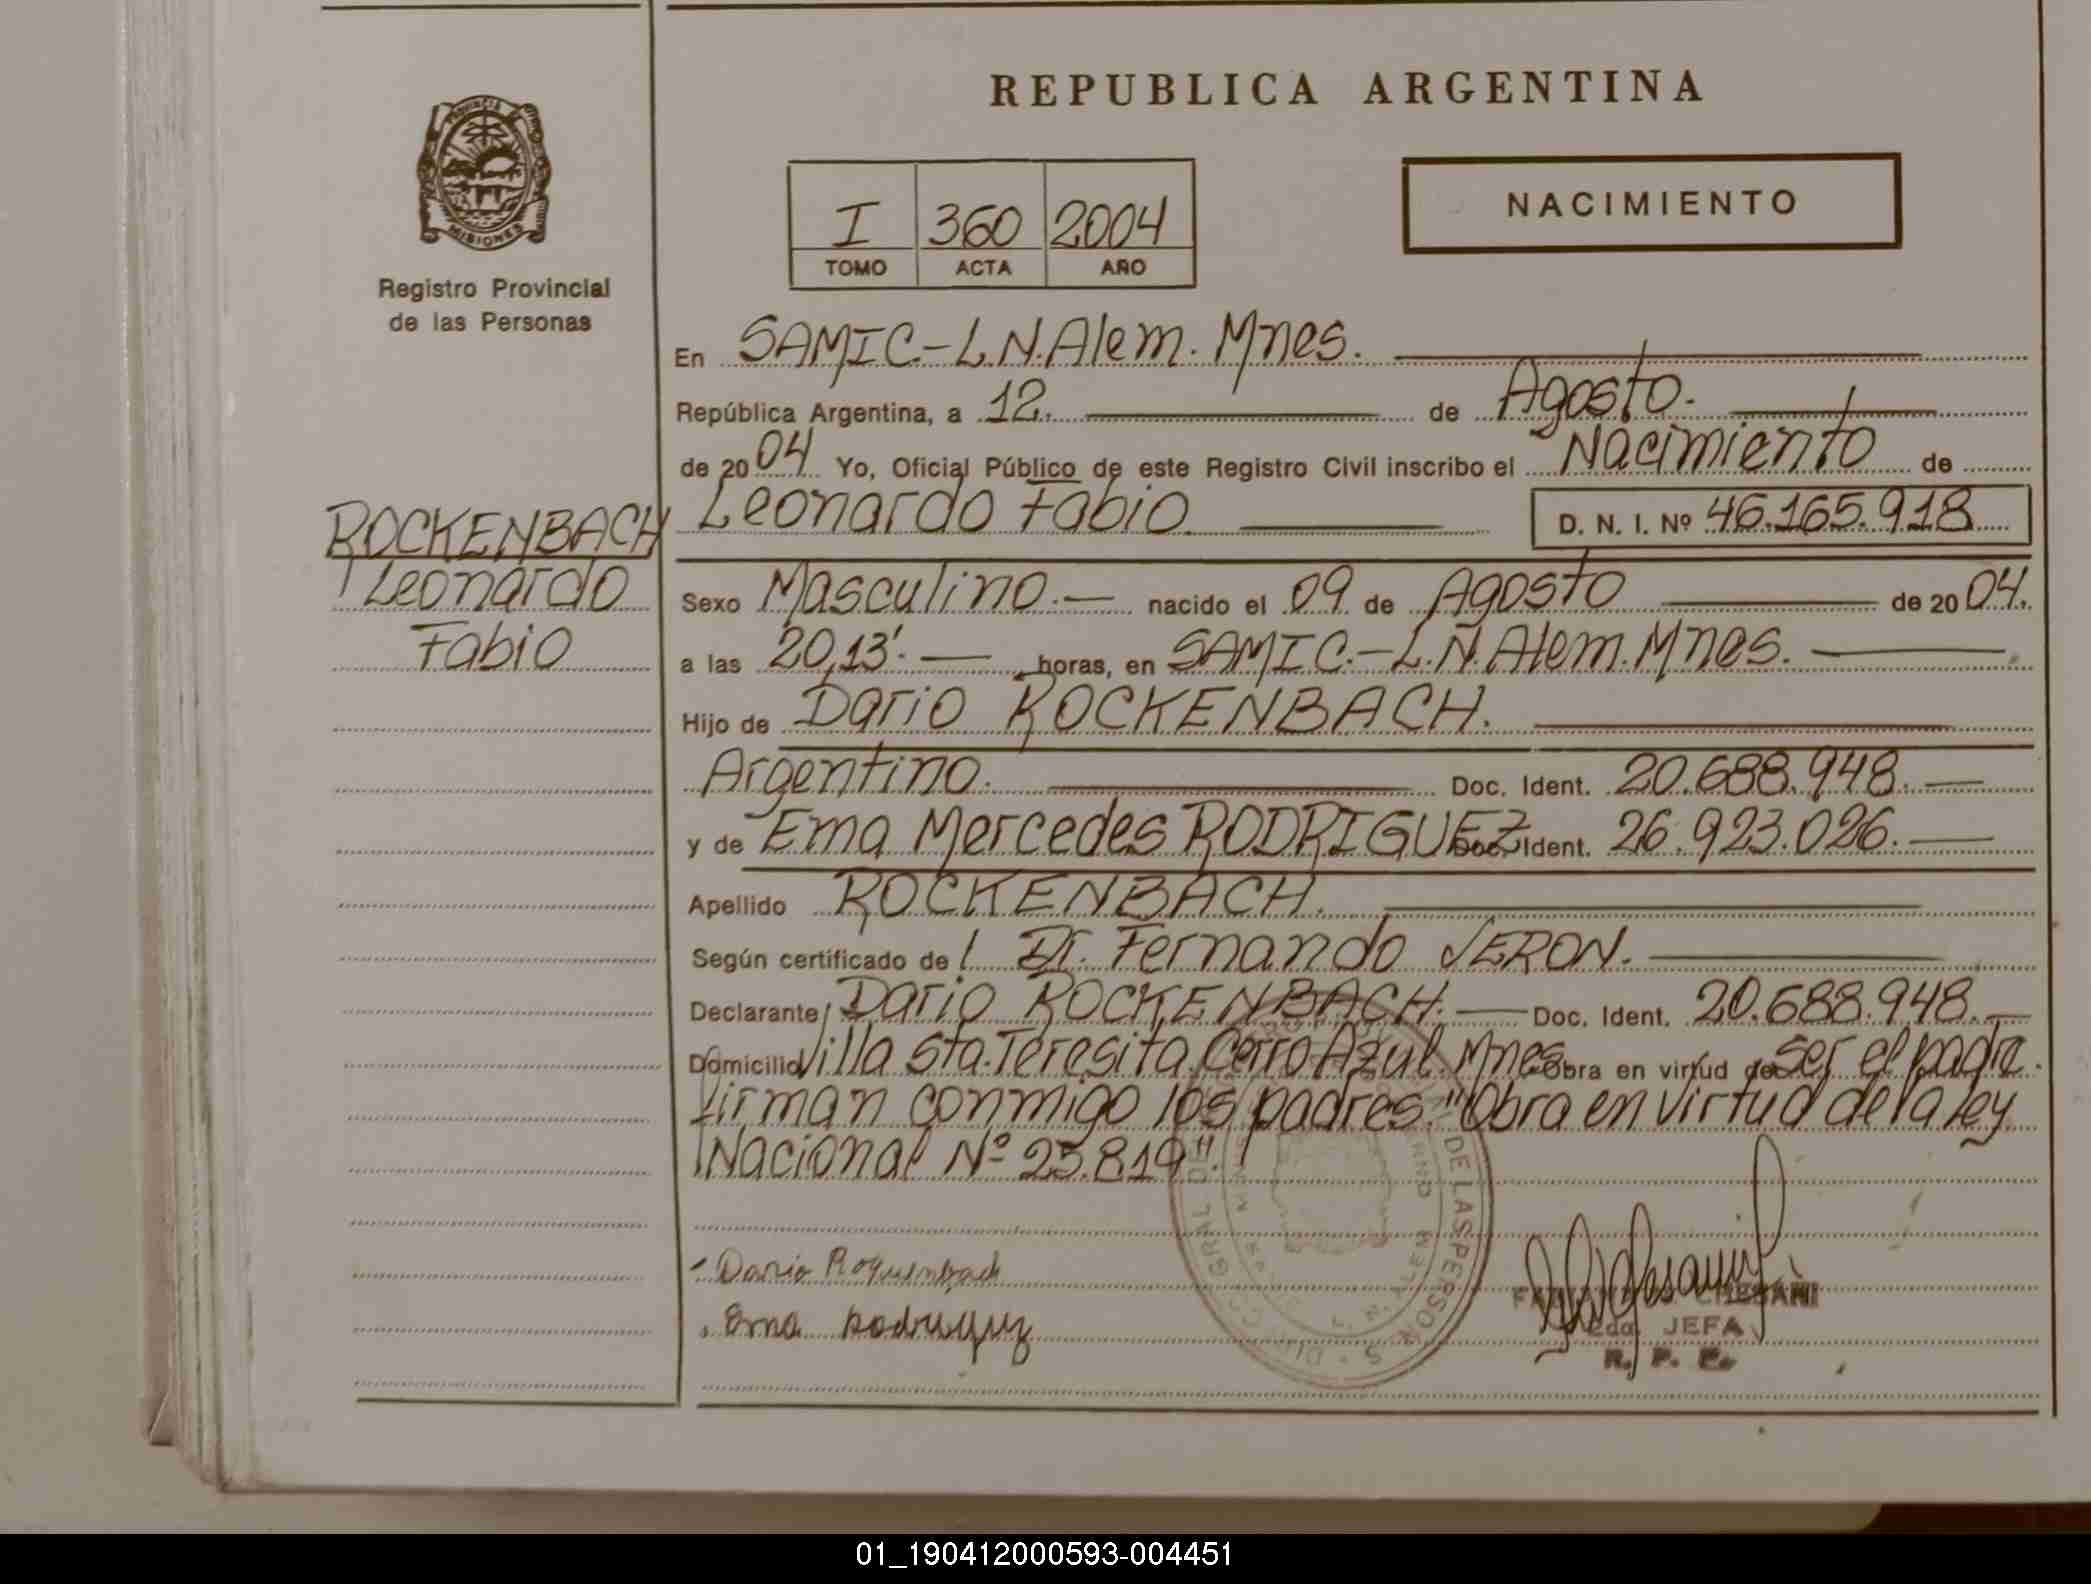 REPUBLICA ARGENTINA
PROVINCIA
MISIONES
Registro Provincial
de las Personas
I 360 2004
TOMO ACTA AÑO
NACIMIENTO
En SAMIC.-L.N.Alem. Mnes.
República Argentina, a 12. de Agosto.
de 2004 Yo, Oficial Público de este Registro Civil inscribo el Nacimiento de
ROCKENBACH
Leonardo
Fabio
Leonardo Fabio D. N. I. Nº 46.165.918
Sexo Masculino.- nacido el 09 de Agosto de 2004.
a las 20,13'. horas, en SAMIC.-L.N.Alem.Mnes.
Hijo de Dario ROCKENBACH.
Argentino. Doc. Ident. 20.688.948.-
y de Ema Mercedes RODRIGUEZ Doc. Ident. 26.923.026.-
Apellido ROCKENBACH.
Según certificado de / Dr. Fernando VERON.
Declarante/ Dario ROCKENBACH.- Doc. Ident. 20.688.948.-
Domicilio Villa Sta.Teresita.Cerro Azul.Mnes Obra en virtud de ser el padre.
Firman conmigo los padres."Obra en virtud de la ley
Nacional Nº 25.819".
Dario Roquenbach
Ema Rodriguez
DE LAS PERSON
L. N. ALEM
JEFA
R. P. P.
01_190412000593-004451